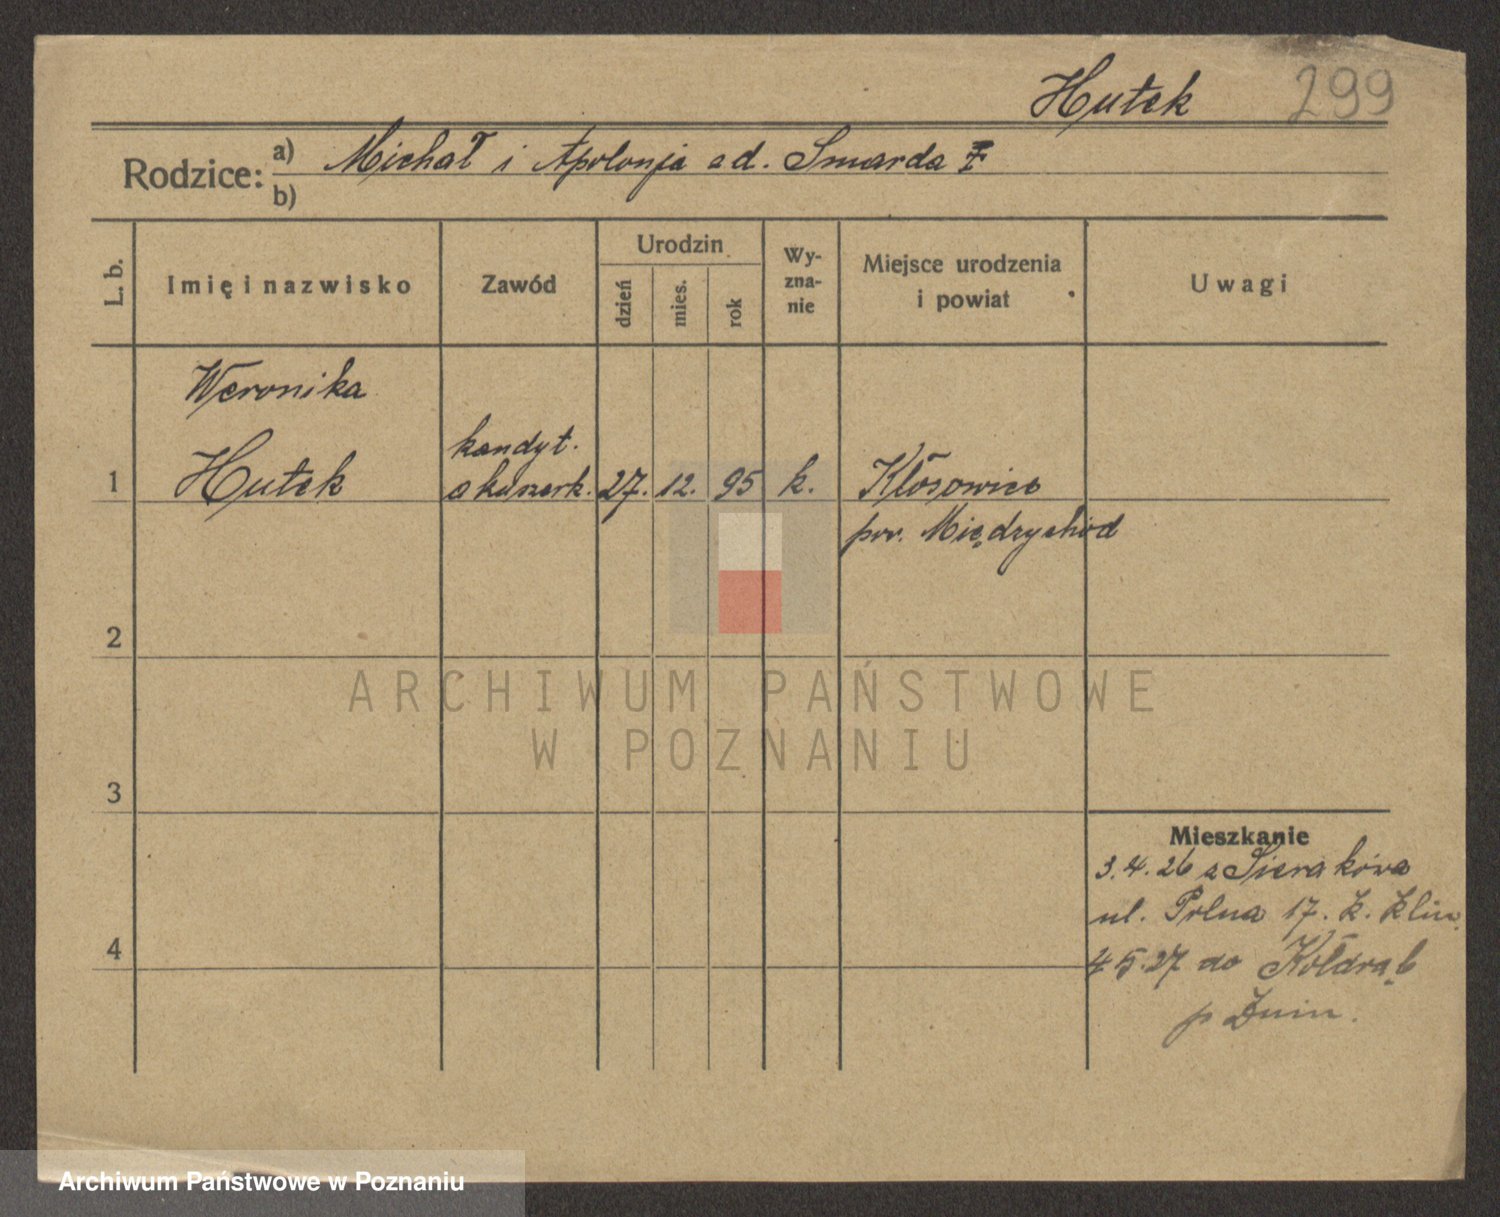 Hutek
299
Rodzice:
a) Michał i Apolonja ad. Smarda
b)
L. b.
Imię i nazwisko
Zawód
Urodzin
dzień
mies.
rok
Wy-
zna-
nie
Miejsce urodzenia
i powiat
Uwagi
Weronika
1 Hutek
kandyt.
akuszerk.
27. 12. 95 k.
Kłosowice
pow. Międzychód
2
3
4
ARCHIWUM PAŃSTWOWE
W POZNANIU
Mieszkanie
3.4.26 z Sierakowa
ul. Polna 17. k. klin.
4 5.27 do Kołdrąb
p Żnin.
Archiwum Państwowe w Poznaniu